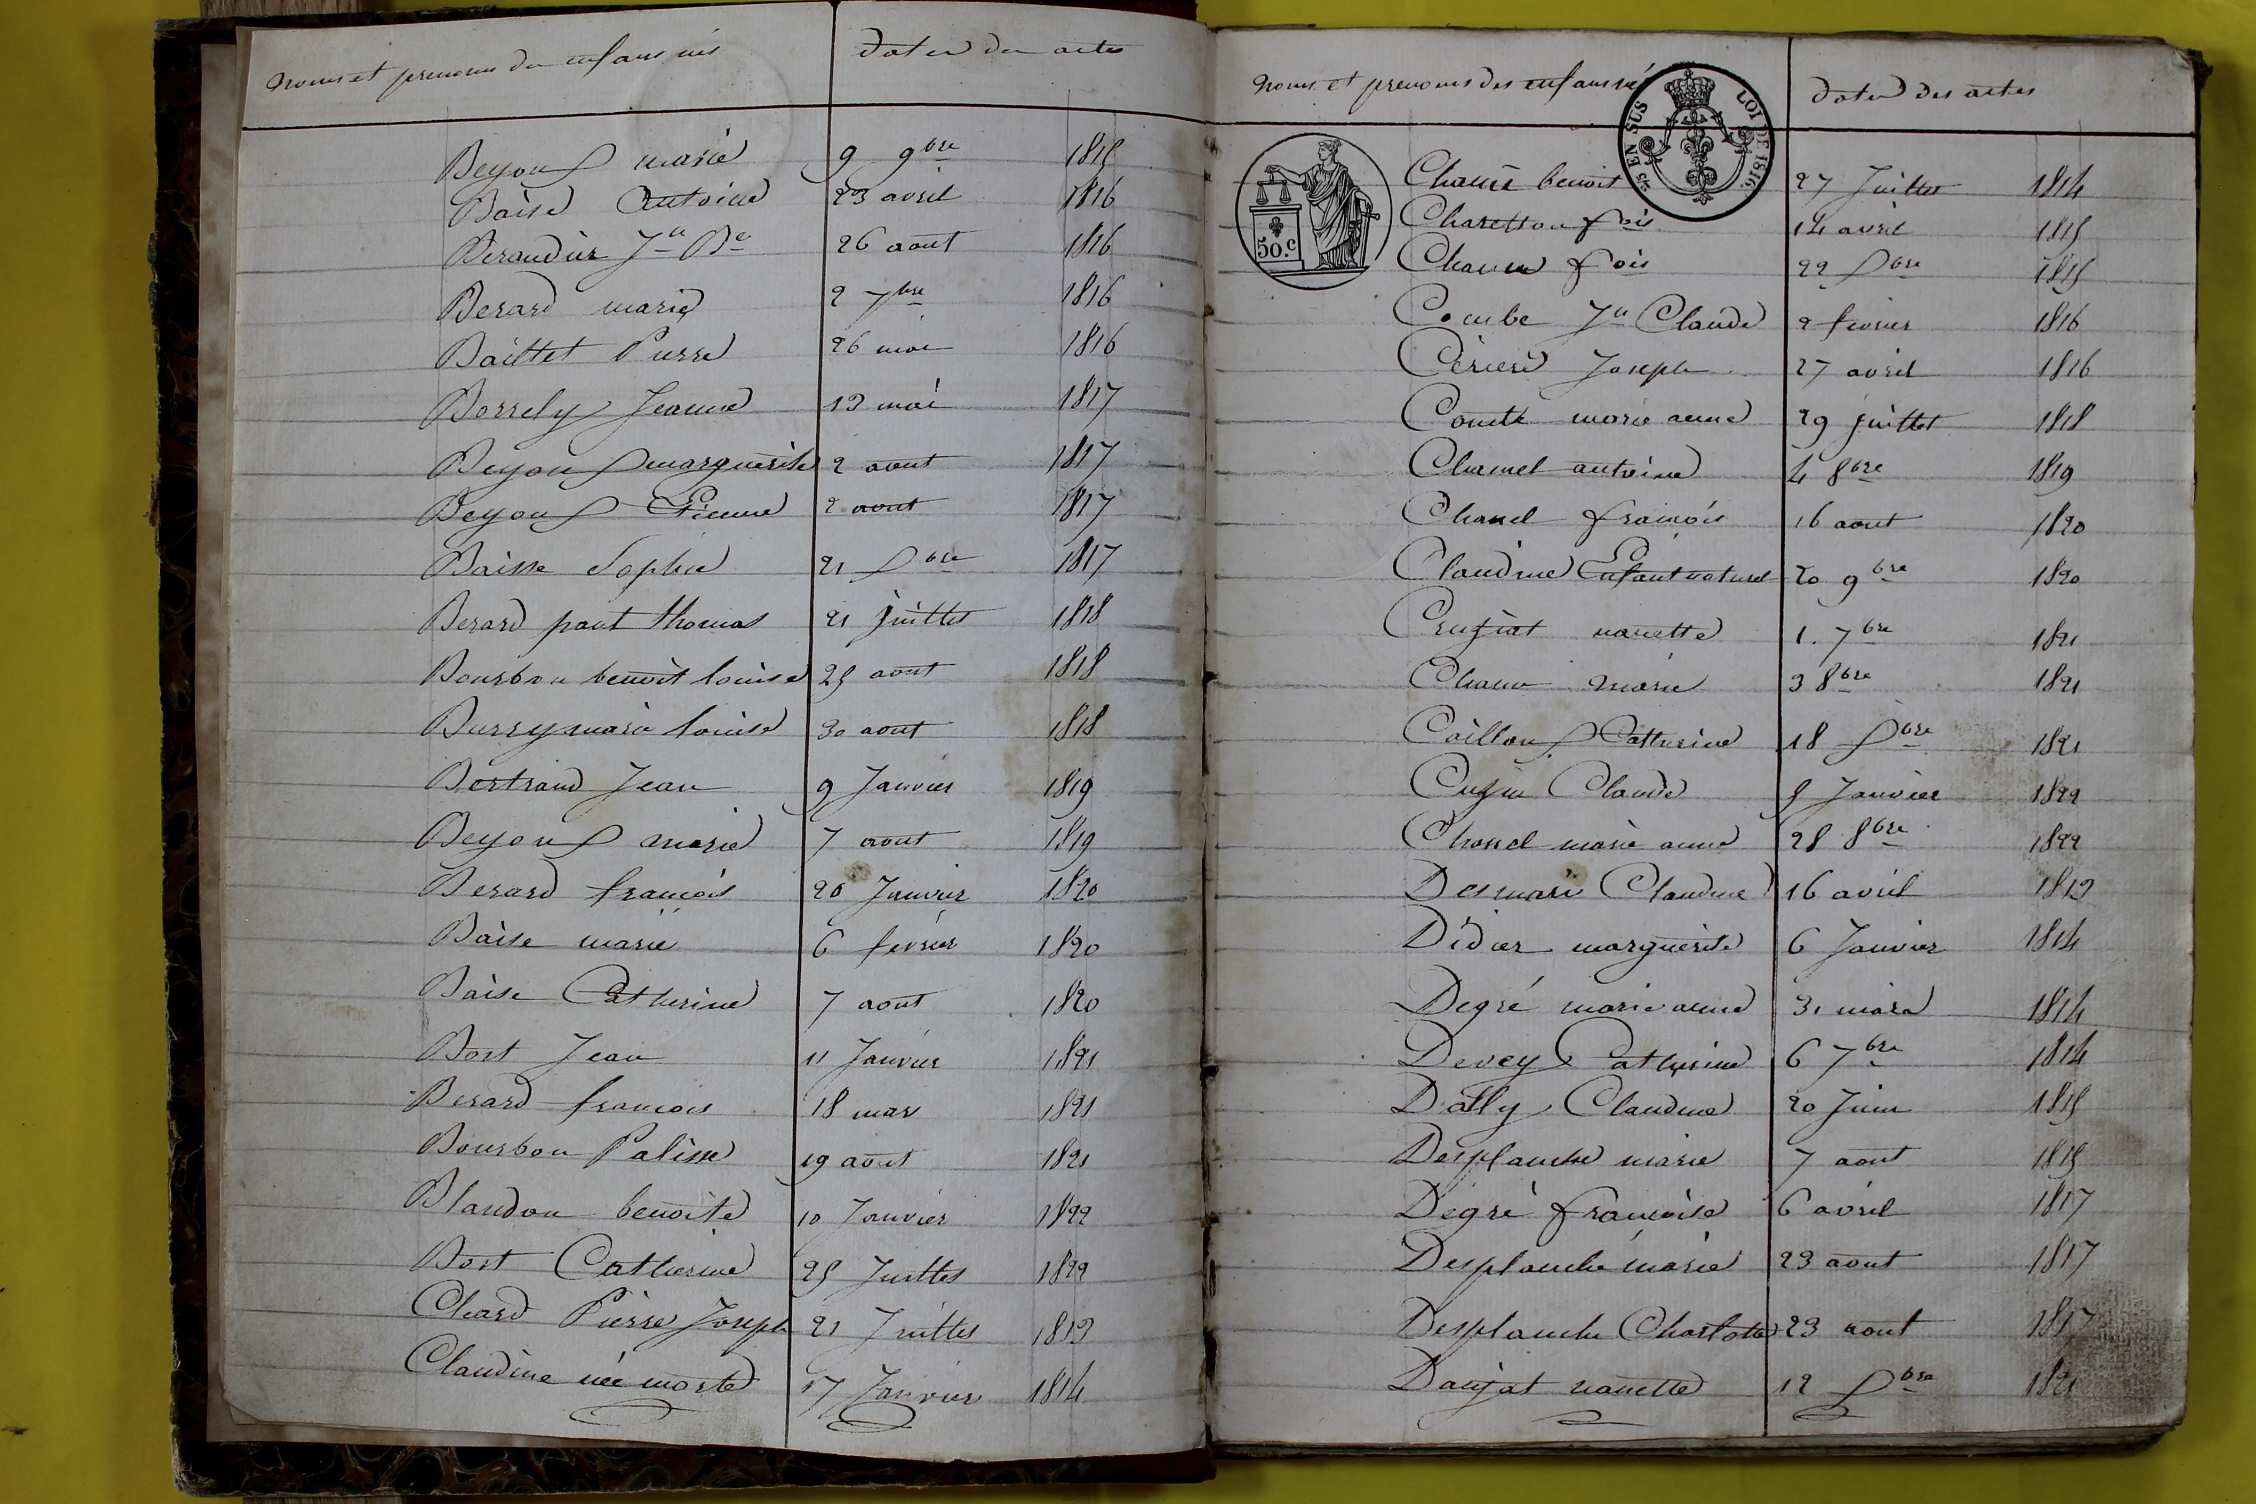 Noms et prenoms des enfans nés dates des actes
Beyon marie 9 9bre 1815
Baise Antoine 23 avril 1816
Beraudier Jn Bte 26 aout 1816
Berard marie 2 7bre 1816
Baillet Pierre 26 mai 1816
Borrely Jeanne 13 mai 1817
Beyon marguerite 2 aout 1817
Beyon Etienne 2 aout 1817
Baisse Sophie 21 Xbre 1817
Berard paul thomas 21 juillet 1818
Bourbon benoit louise 25 aout 1818
Burry marie louise 30 aout 1818
Bertrand Jean 9 Janvier 1819
Beyon marie 7 aout 1819
Berard francois 20 Janvier 1820
Baise marie 6 fevrier 1820
Baise Catherine 7 aout 1820
Bost Jean 11 Janvier 1821
Berard francois 18 mars 1821
Bourbon Palisse 19 aout 1821
Blandon benoite 10 Janvier 1822
Bost Catherine 25 Juillet 1822
Chard Pierre Joseph 21 Juillet 1813
Claudine née morte 17 Janvier 1814
Noms et prenoms des enfans nés dates des actes
EN SUS LOI DE 1816
50.c
benoit 27 Juillet 1814
Charetton fois 14 avril 1815
fois 22 Xbre 1815
Combe Jn Claude 2 fevrier 1816
Joseph 27 avril 1816
Comte marie anne 29 juillet 1818
Charnel antoine 4 8bre 1819
Chanel francois 16 aout 1820
Claudine Enfant naturel 20 9bre 1820
Cruziat nanette 1. 7bre 1821
marie 3 8bre 1821
Caillon Catherine 18 Xbre 1821
Cuzin Claude 9 Janvier 1822
Chossel marie anne 28 8bre 1822
Desmaris Claudine 16 avril 1813
Didier marguerite 6 Janvier 1814
Degré marie anne 31 mars 1814
Devey Catherine 6 7bre 1814
Dally Claudine 20 Juin 1815
Desplanche marie 7 aout 1815
Degré francoise 6 avril 1817
Desplanche marie 23 aout 1817
Desplanche Charlotte 23 aout 1817
Daujat nanette 12 Xbre 1821